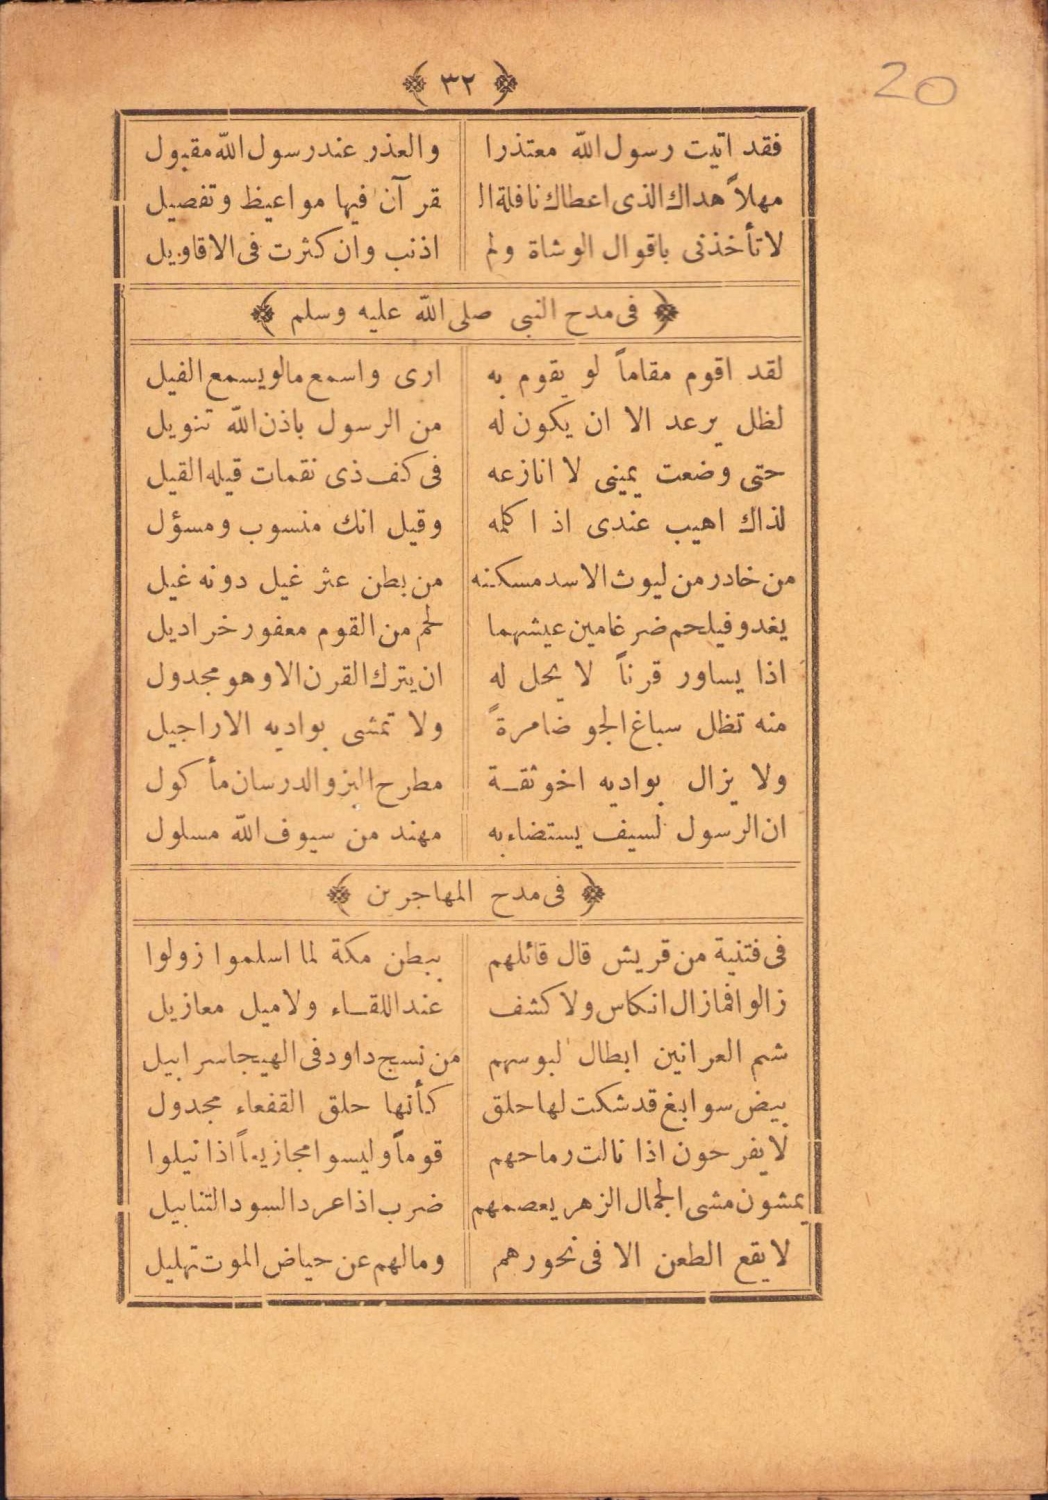 ﴿ ٣٢ ﴾
20
فقد اتيت رسول الله معتذرا والعذر عند رسول الله مقبول
مهلاً هداك الذى اعطاك نافلة ال قرآن فيها مواعيظ وتفصيل
لا تأخذنى باقوال الوشاة ولم اذنب وان كثرت فى الاقاويل
﴿ فى مدح النبى صلى الله عليه وسلم ﴾
لقد اقوم مقاماً لو يقوم به ارى واسمع مالو يسمع الفيل
لظل يرعد الا ان يكون له من الرسول باذن الله تنويل
حتى وضعت يمينى لا انازعه فى كف ذى نقمات قيله القيل
لذاك اهيب عندى اذ اكلمه وقيل انك منسوب ومسؤل
من خادر من ليوث الاسد مسكنه من بطن عثر غيل دونه غيل
يغدو فيلحم ضرغامين عيشهما لحم من القوم معفور خراديل
اذا يساور قرناً لا يحل له ان يترك القرن الا وهو مجدول
منه تظل سباغ الجو ضامرةً ولا تمشى بواديه الاراجيل
ولا يزال بواديه اخو ثقة مطرح البز والدرسان مأكول
ان الرسول لسيف يستضاء به مهند من سيوف الله مسلول
﴿ فى مدح المهاجرين ﴾
فى فتنية من قريش قال قائلهم ببطن مكة لما اسلموا زولوا
زالوا فمازال انكاس ولا كشف عند اللقاء ولا ميل معازيل
شم العرانين ابطال لبوسهم من نسج داود فى الهيجا سرابيل
بيض سوابغ قد شكت لها حلق كأنها حلق القفعاء مجدول
لا يفرحون اذا نالت رماحهم قوماً وليسوا مجازيعاً اذا نيلوا
يمشون مشى الجمال الزهر يعصمهم ضرب اذا عرد السود التنابيل
لا يقع الطعن الا فى نحورهم ومالهم عن حياض الموت تهليل